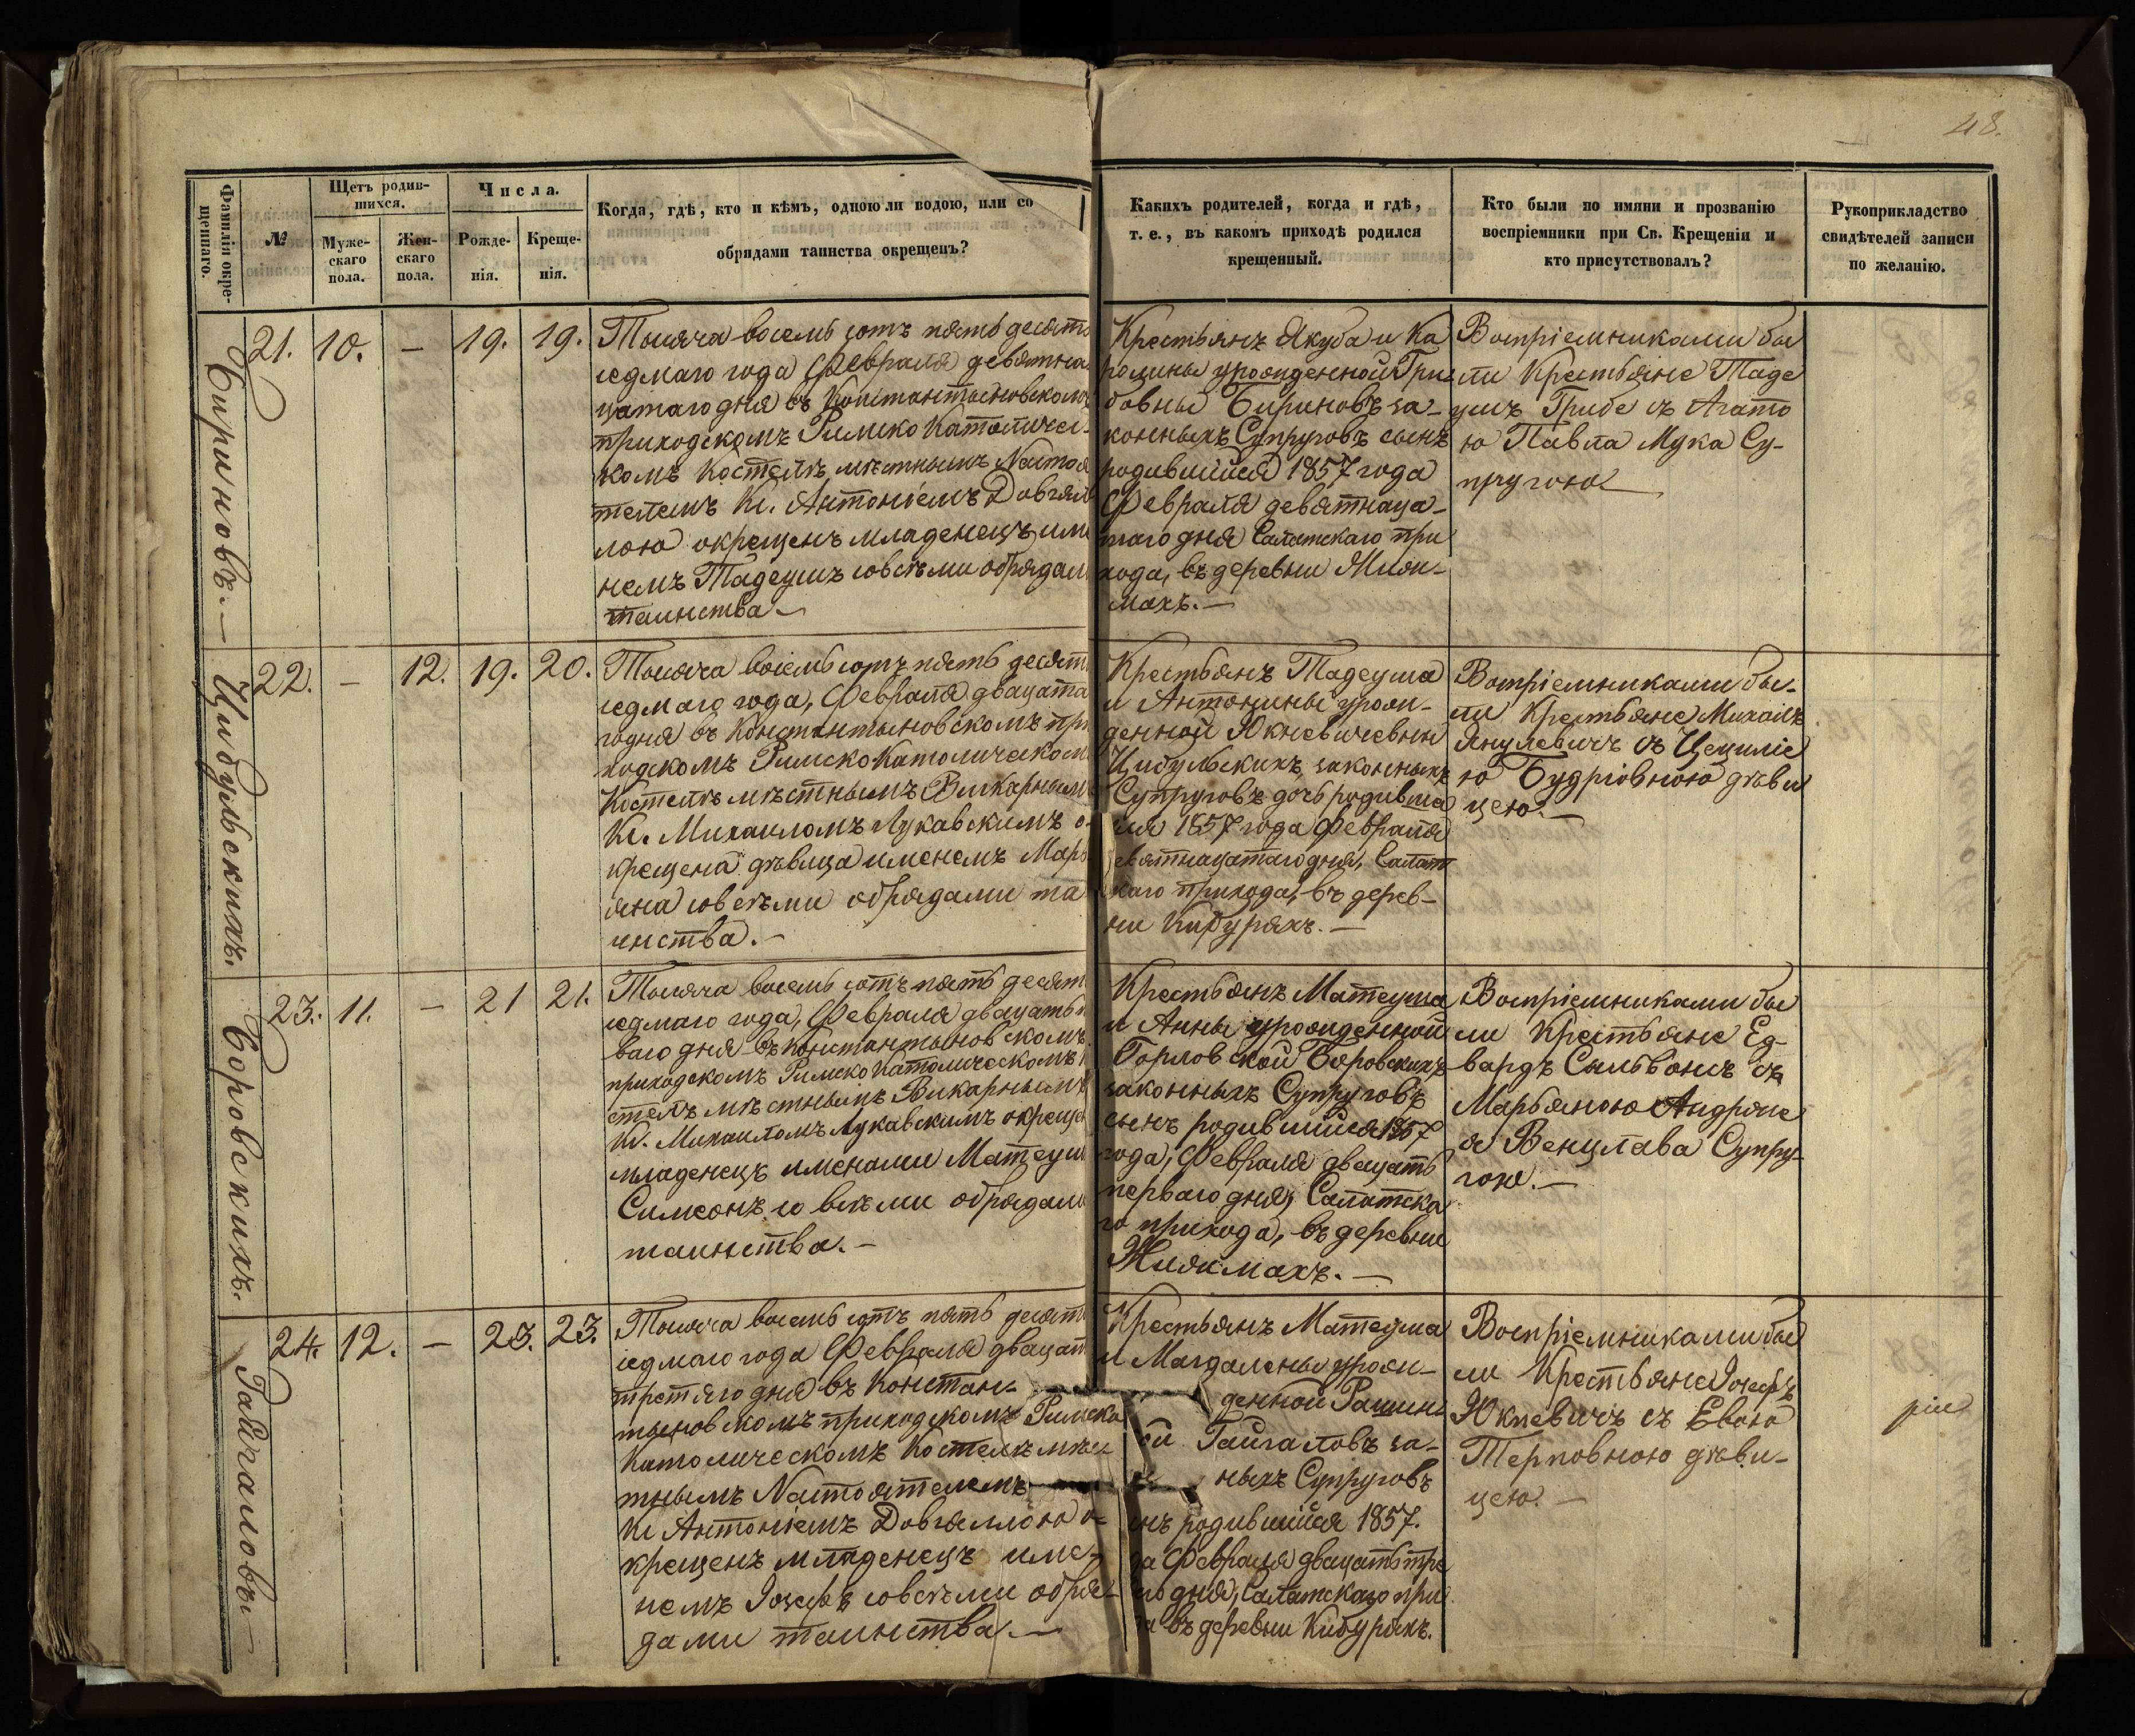 48.
Фамилія окре-
щеннаго.
№
Щетъ родив-
шихся.
Муже-
скаго
пола.
Жен-
скаго
пола.
Числа.
Рожде-
нія.
Креще-
нія.
Когда, гдѣ, кто и кѣмъ, одною ли водою, или со
обрядами таинства окрещенъ?
Какихъ родителей, когда и гдѣ,
т. е., въ какомъ приходѣ родился
крещенный.
Кто были по имяни и прозванію
воспріемники при Св. Крещеніи и
кто присутствовалъ?
Рукоприкладство
свидѣтелей записи
по желанію.
Бириновъ.—
21. 10. — 19. 19.
Тысяча восемь сотъ пять десятъ
седмаго года Февраля девятна
цатаго дня въ Константыновскомъ
приходскомъ Римско Католичес-
комъ Костелѣ мѣстнымъ Настоя
телемъ Кс. Антоніемъ Довгял
лою окрещенъ младенецъ име
немъ Тадеушъ со всѣми обрядами
таинства.—
Крестьянъ Якуба и Ка
ролины урожденной Гри
бовны Бириновъ за-
конныхъ Супруговъ сынъ
родившійся 1857 года
Февраля девятнаца-
таго дня Салатскаго при
хода, въ деревни Жиок-
махъ.—
Воспріемниками бы
ли Крестьяне Таде
ушъ Грибе съ Агато
ю Павла Мука Су-
пругою
Цибульскихъ.
22. — 12. 19. 20.
Тысяча восемь сотъ пять десятъ
седмаго года, Февраля двацата
го дня въ Константыновскомъ при
ходскомъ Римско Католическомъ
Костелѣ мѣстнымъ Викарнымъ
Кс. Михаиломъ Лукавскимъ о-
крещена дѣвица именемъ Марь
яна со всѣми обрядами та
инства.—
Крестьянъ Тадеуша
и Антонины урож-
денной Юкневичевны
Цибульскихъ, законныхъ
Супруговъ дочь родивша
яся 1857 года Февраля
евятнацатаго дня, Салатс
каго прихода, въ дерев-
ни Кибуряхъ.—
Воспріемниками бы-
ли Крестьяне Михаилъ
Янулевичъ съ Цециліе
ю Будріовною дѣви
цею.—
Боровскихъ.
23. 11. — 21 21.
Тысяча восемь сотъ пять десятъ
седмаго года, Февраля двацать п
ваго дня въ Константыновскомъ
приходскомъ Римско Католическомъ К
стелѣ мѣстнымъ Викарнымъ
Кс. Михаиломъ Лукавскимъ окреще
младенецъ именами Матеуш
Симеонъ со всѣми обрядами
таинства.—
Крестьянъ Матеуша
и Анны урожденной
Горловской Боровскихъ
законныхъ Супруговъ
сынъ родившійся 1857
года, Февраля двацать
перваго дня, Салатска
го прихода, въ деревни
Жиокмахъ.—
Воспріемниками бы
ли Крестьяне Ед-
вардъ Сильвонъ съ
Марьяною Андріе
я Венцлава Супру-
гою.—
Гайгаловъ.—
24. 12. — 23. 23.
Тысяча восемь сотъ пять десятъ
седмаго года Февраля двацат
третяго дня въ Констан-
тыновскомъ приходскомъ Римско
Католическомъ Костелѣ мѣс
тнымъ Настоятелемъ
Кс Антоніемъ Довгяллою о-
крещенъ младенецъ име-
немъ Іозефъ со всѣми обря-
дами таинства.—
Крестьянъ Матеуша
и Магдалены урож-
денной Рашин
ой Гайгаловъ за-
ныхъ Супруговъ
нъ родившійся 1857.
да Февраля двацать тре
го дня, Салатскаго при
а въ деревни Кибуряхъ.
Воспріемниками бы
ли Крестьяне Іозефъ
Юкневичъ съ Евою
Терповною дѣви-
цею.—